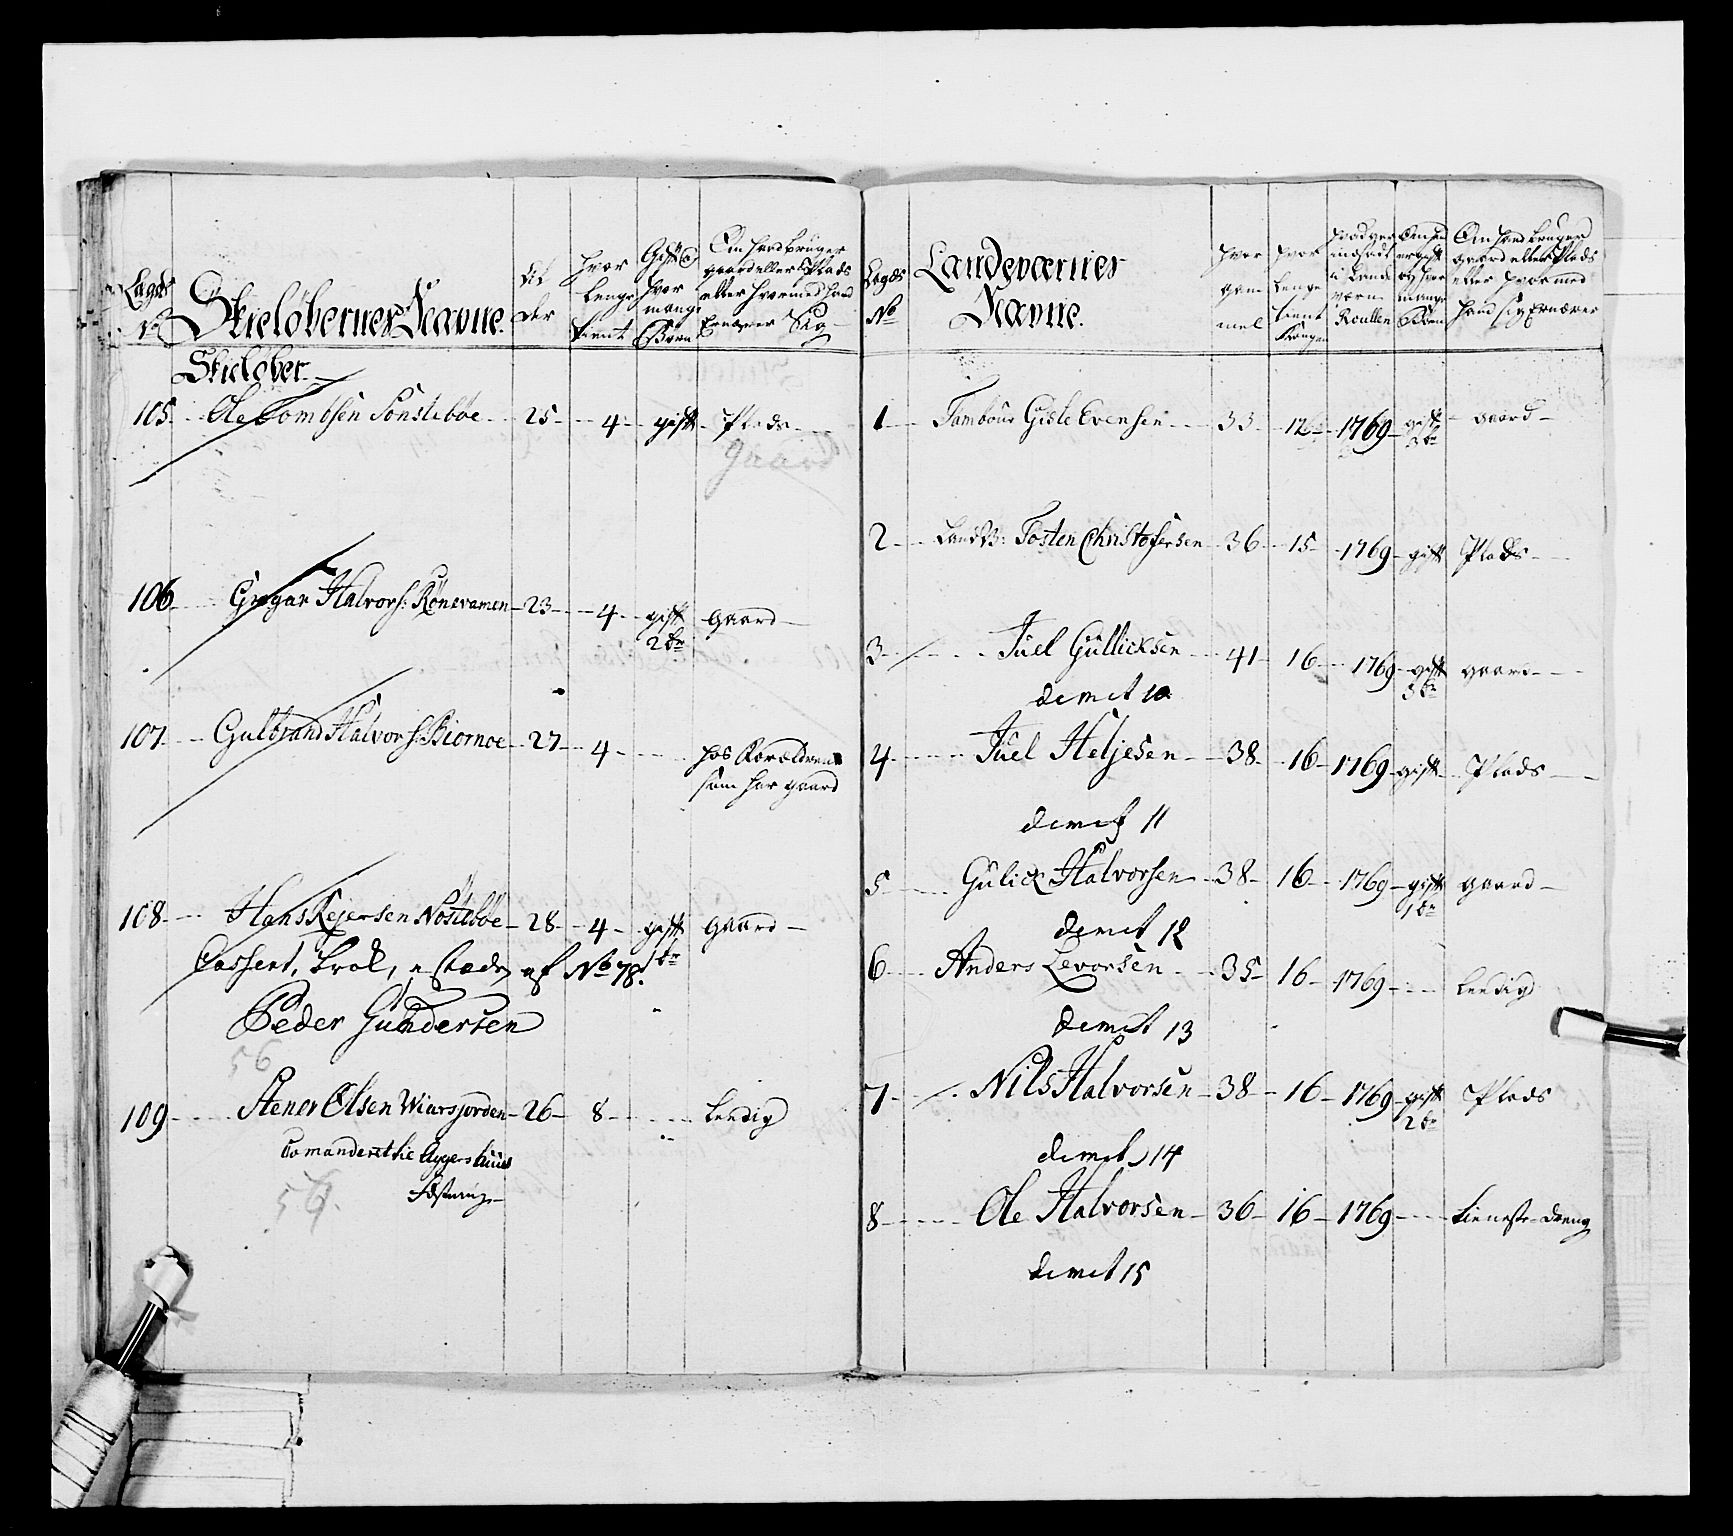 Lægds No
Skieløbernes Navne.
Al der
hvor lenge tient
Gift og hvor mange Børn
Om hand bruger gaard eller Plads eller hvormed hand Ernærer Sig
Skieløber
105 Ole Tombsen Sønstebøe 25 4 gift Plads
gaard
106 Gregar Halvors: Rønevamen 23 4 gift gaard
2 bn
107 Gulbrand Halvors: Biornøe 27 4 hos Forældrene
som har gaard
108 Hans Rejersen Nøstebøe 28 4 gift gaard
1 bn
Cassert, af No 78.
Peder Gundersen
56
109 Stener Olsen Wiursjorden 26 8 Leedig
Comanderet til Aggershuus
Fæstning
56.
Lægds No
Landeværnes Navne.
hvor gam mel
hvor lenge tient Kongen
hvad aar indsadt i Lande værn Roullen
Om hand er gift og hvor mange Børn
Om hand bruger gaard eller Plads eller hvormed hand sig Ernærer
1 Tambour Gisle Evensen 33 12 1769 gift gaard
2 bn
2 LandsB: Tosten Christofersen 36 15 1769 gift Plads
3 Juel Gullicksen 41 16 1769 gift gaard
3 bn
dimit 10
4 Juel Heljesen 38 16 1769 gift Plads
dimit 11
5 Gulick Halvorsen 38 16 1769 gift gaard
1 bn
dimit 12
6 Anders Levorsen 35 16 1769 Leedig
dimit 13
7 Nils Halvorsen 38 16 1769 gift Plads
2 bn
dimit 14
8 Ole Halvorsen 36 16 1769 tieneste dreng
dimit 15